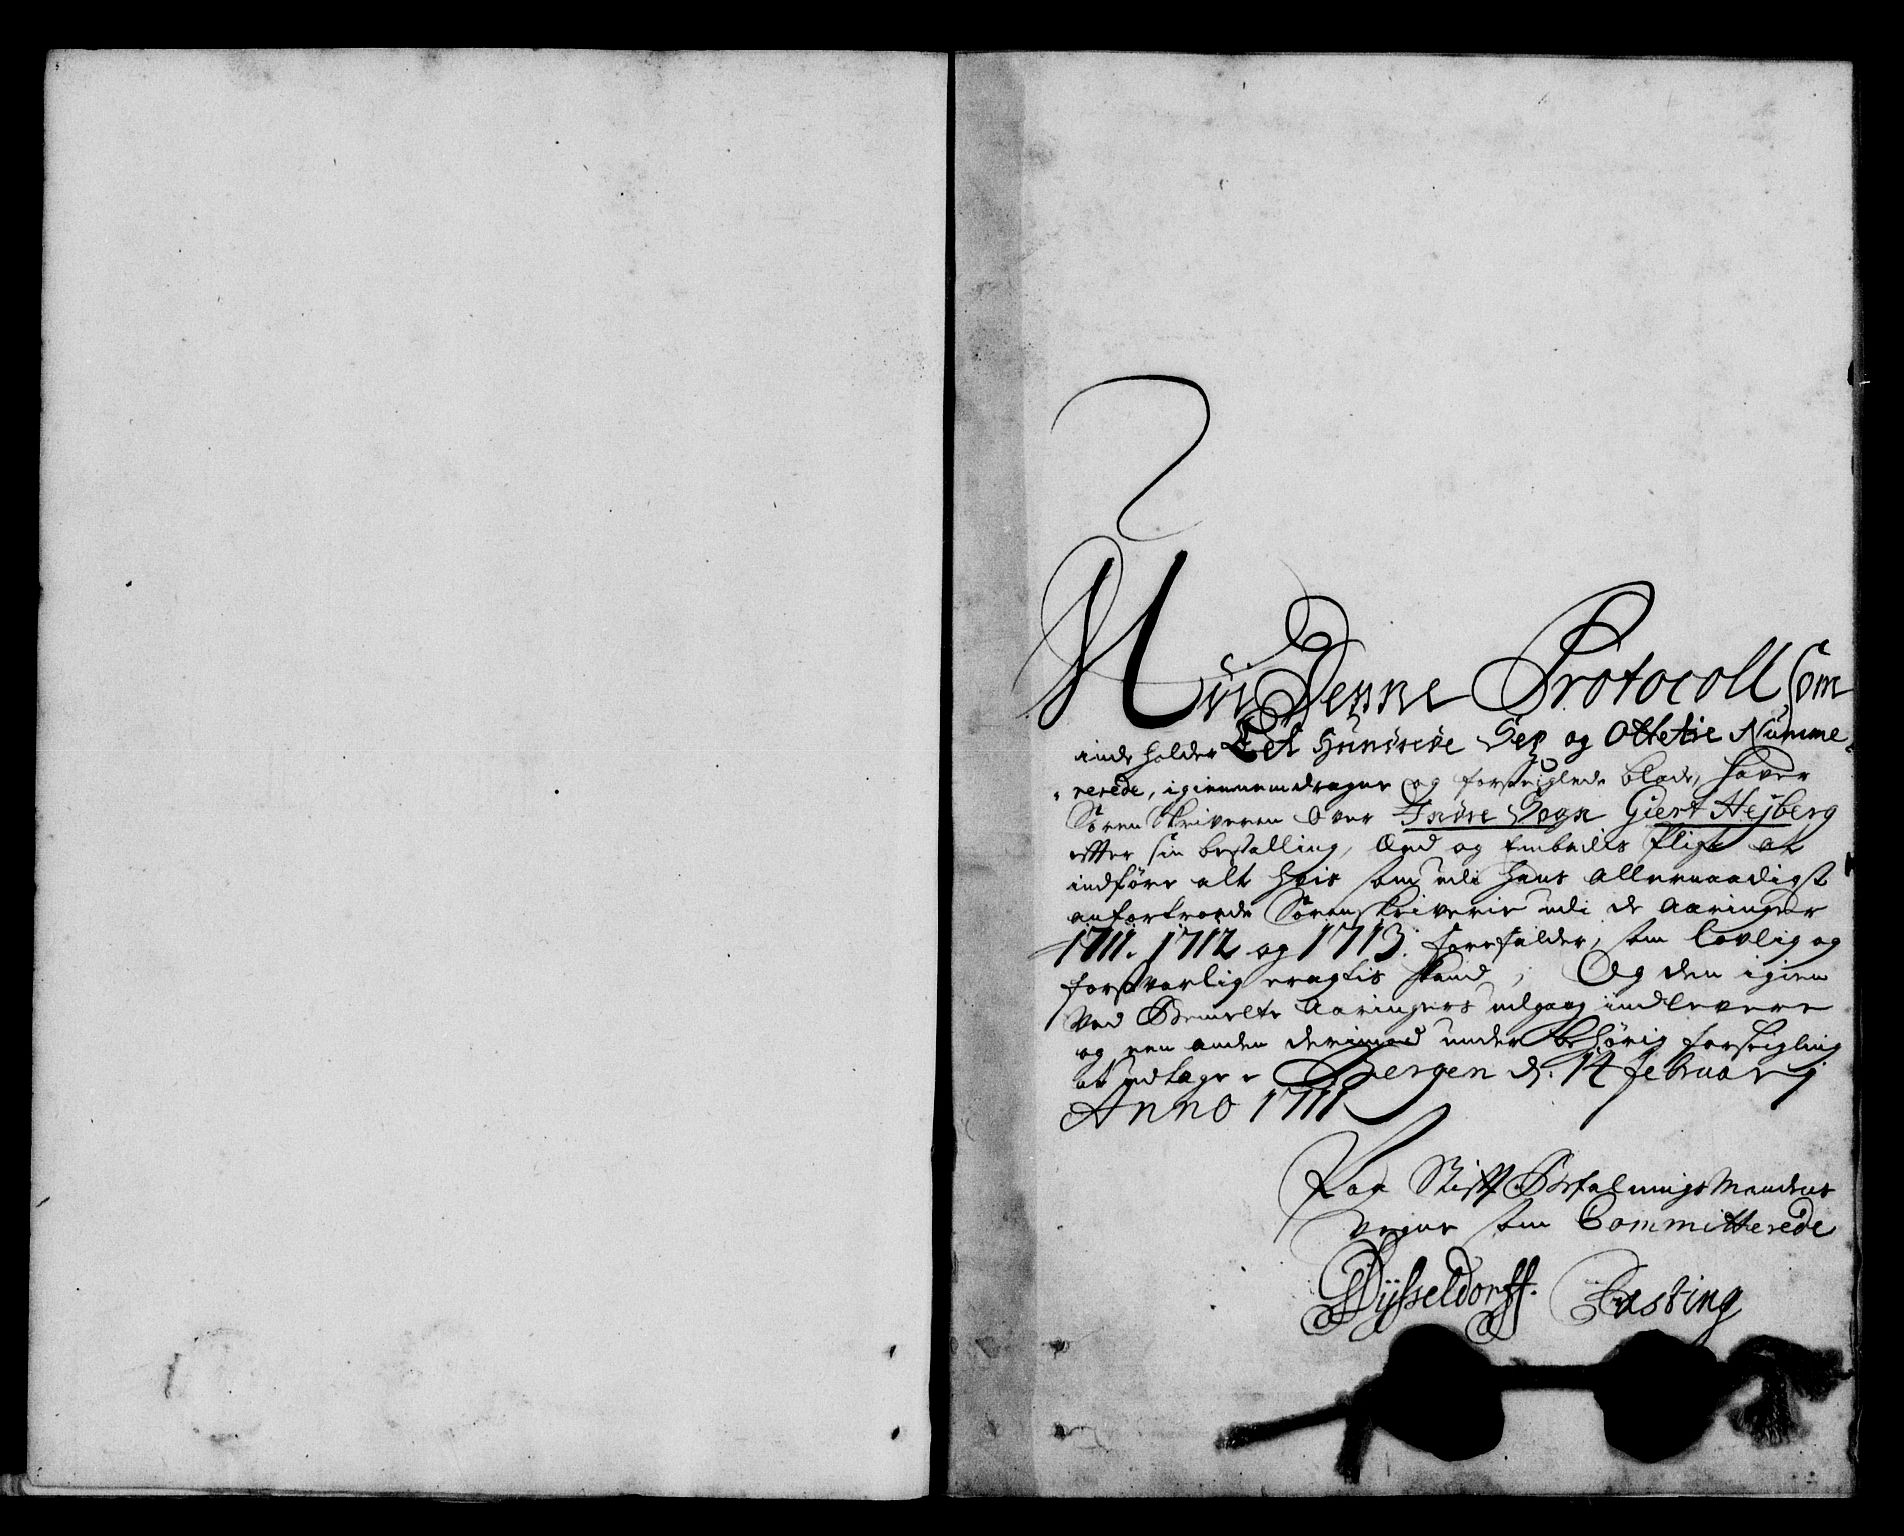 Udi Denne Protocoll, Som
indeholder Eet Hundrede Sex og Ottetie Numme¬
rerede, igiennemdragne og forseiglede blade, hafver
Sorenskriveren Over Indre Sogn Giert Hejberg
efter sin bestalling, Æed og Embeds Pligt at
indføre alt hvis som udi hans allernaadigst
anfortroede Sorenskriverie udi de aaringer
1711. 1712 og 1713. forefalder, som lovlig og
forsvarlig eragtis kand, Og den igien
Ved Bemelte aaringers udgang indlevere
og een anden derimod under behørig forseigling
at udtage. Bergen d. 14 Februarij
Anno 1711
Paa Stift Befalnings Mandens
vegne som Committerede
Dÿsseldorff. Fasting